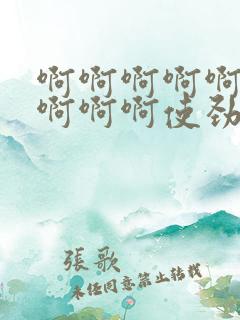 啊啊啊啊啊
啊啊啊使劲
張歌
未经同意禁止转载